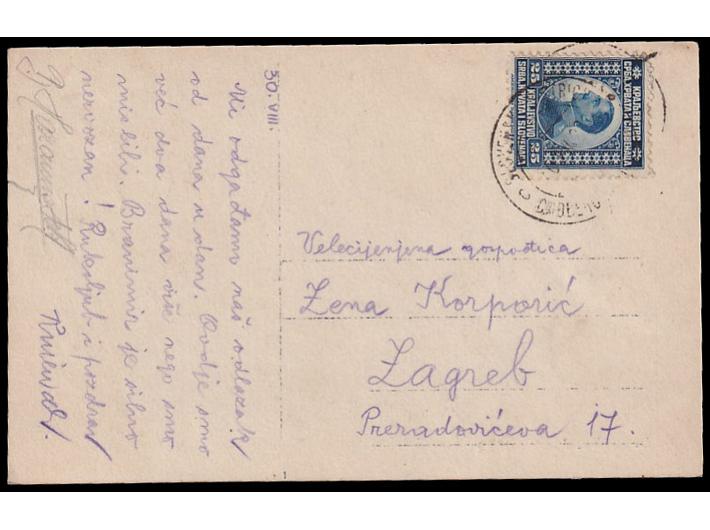 30. VIII.
Mi odgađamo naš odlazak
od dana u dan. Ovdje smo
već dva dana više nego smo
mislili. Branimir je silno
nervozan! Rukoljub i pozdrav
КРАЉЕВСТВО
СРБА ХРВАТА И СЛОВЕНАЦА
25 25
KRALJEVSTVO
SRBA HRVATA I SLOVENACA
Velecijenjena gospođica
Zena Korporić
Zagreb
Preradovićeva 17.